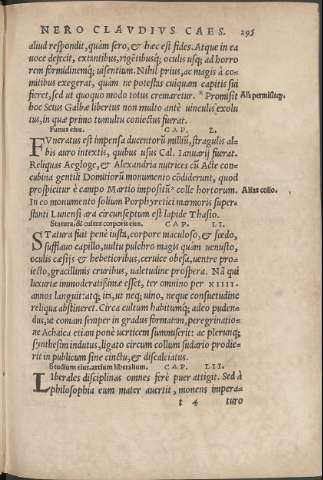 NERO CLAVDIVS CAES. 295
aliud respondit, quàm serò, & hæc est fides. Atque in ea
uoce defecit, extantibus, rigẽtibusq; oculis usq; ad horro
rem formidinemq; uisentium. Nihil prius, ac magis à co-
mitibus exegerat, quàm ne potestas cuiquam capitis sui
fieret, sed ut quoquo modo totus cremaretur. * Promisit
Aliàs permisitq;.
hoc Icelus Galbæ libertus non multo antè uinculis exolu
tus, in quæ primo tumultu coniectus fuerat.
Funus eius. CAP. L.
FVneratus est impensa ducentorũ milliũ, stragulis al-
bis auro intextis, quibus usus Cal. Ianuarij fuerat.
Reliquias Aegloge, & Alexandria nutrices cũ Acte con-
cubina gentili Domitiorũ monumento cõdiderunt, quod
prospicitur è campo Martio impositũ * colle hortorum.
Aliàs collo.
In eo monumento solium Porphyretici marmoris super-
stanti Lunensi ara circunseptum est lapide Thasio.
Statura, & cultus corporis eius. CAP. LI.
STatura fuit penè iusta, corpore maculoso, & fœdo,
sufflauo capillo, uultu pulchro magis quàm uenusto,
oculis cæsijs & hebetioribus, ceruice obesa, uentre pro-
iecto, gracillimis cruribus, ualetudine prospera. Nã qui
luxuriæ immoderatißimæ esset, ter omnino per XIIII.
annos languit: atq; ita, ut neq; uino, neque consuetudine
reliqua abstineret. Circa cultum habitumq; adeò puden-
dus, ut comam semper in gradus formatam, peregrinatio-
ne Achaica etiam ponè uerticem summiserit: ac plerunq;
synthesim indutus, ligato circum collum sudario prodie-
rit in publicum sine cinctu, & discalciatus.
Studium eius artium liberalium. CAP. LII.
LIberales disciplinas omnes ferè puer attigit. Sed à
philosophia eum mater auertit, monens impera-
t 4 turo